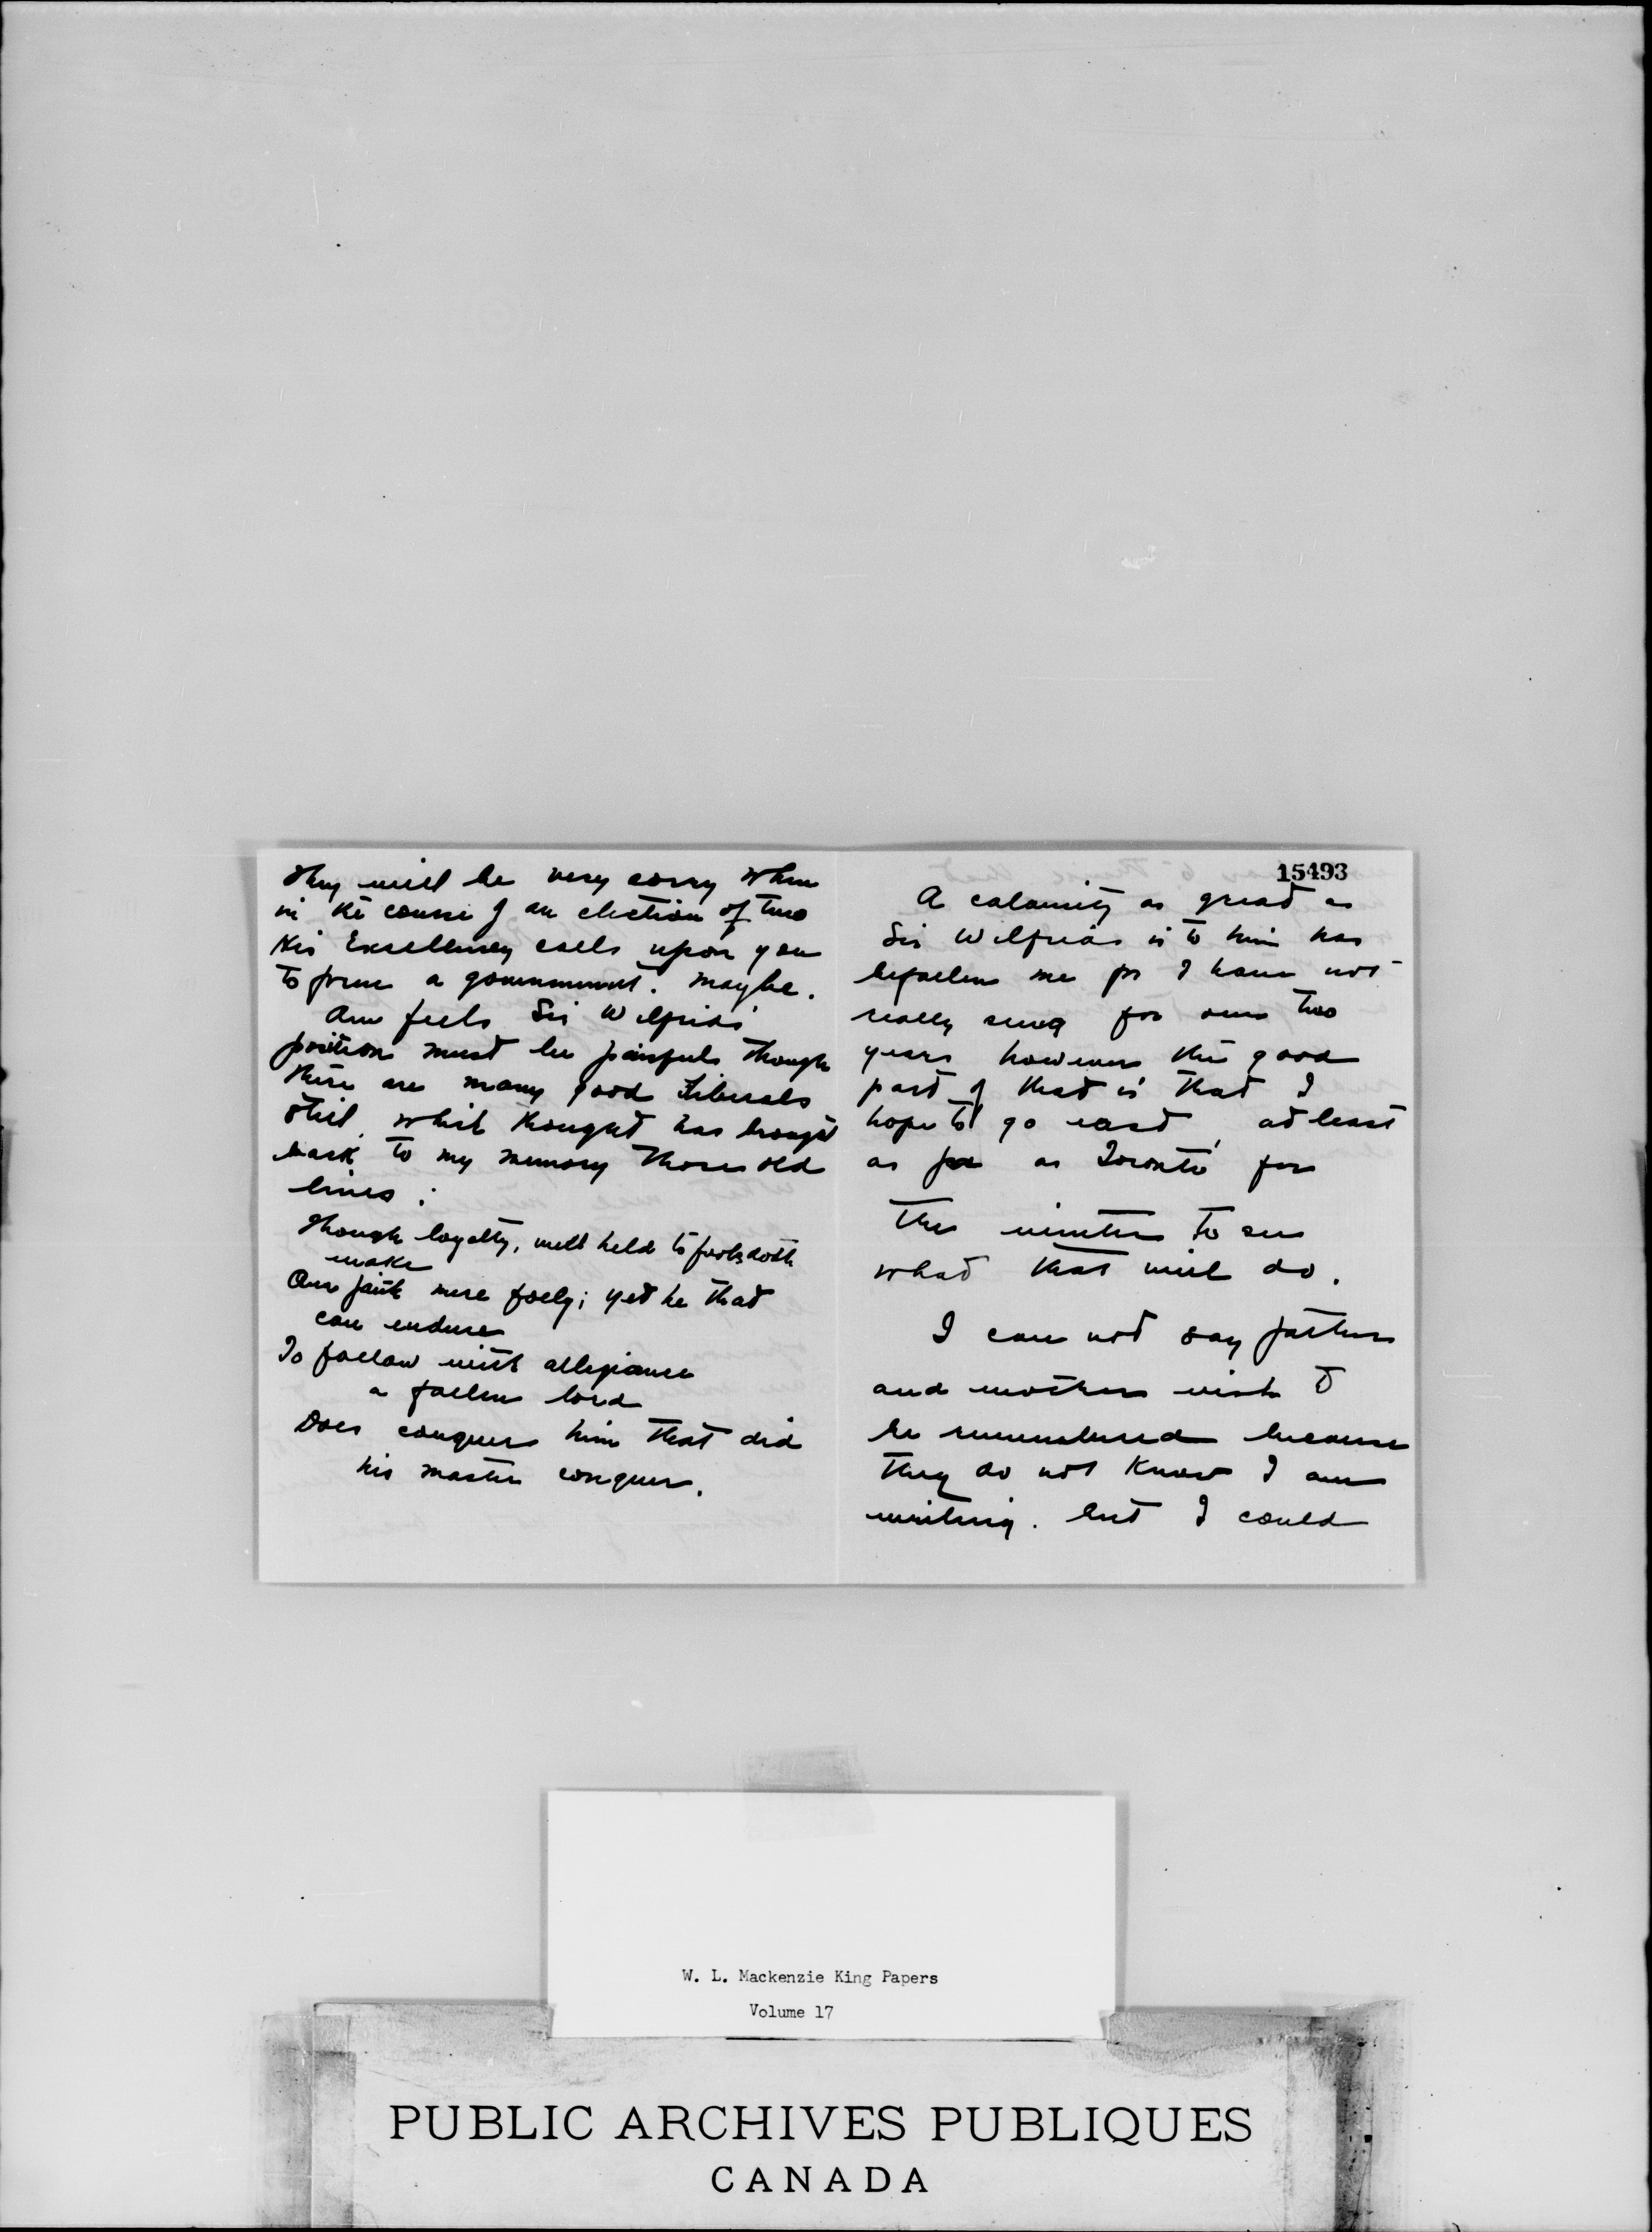 They will be very sorry when
in the course of an election of two
His Excellency calls upon you
to form a government. maybe.
One feels Sir Wilfrid's
position must be painful though
there are many good Liberals
still. which thought has brought
back to my memory those old
lines:
Though loyalty, well held to fools doth
make
Our faith mere folly; yet he that
can endure
To follow with allegiance
a fallen lord
Does conquer him that did
his master conquer.
15493
A calamity as great as
Sir Wilfrid's is to him has
befallen me for I have not
really sung for over two
years however the good
part of that is that I
hope to go east, at least
as far as Toronto for
the winter to see
what that will do.
I can not say father
and mother wish to
be remembered because
they do not know I am
writing. but I could
W. L. Mackenzie King Papers
Volume 17
PUBLIC ARCHIVES PUBLIQUES
CANADA